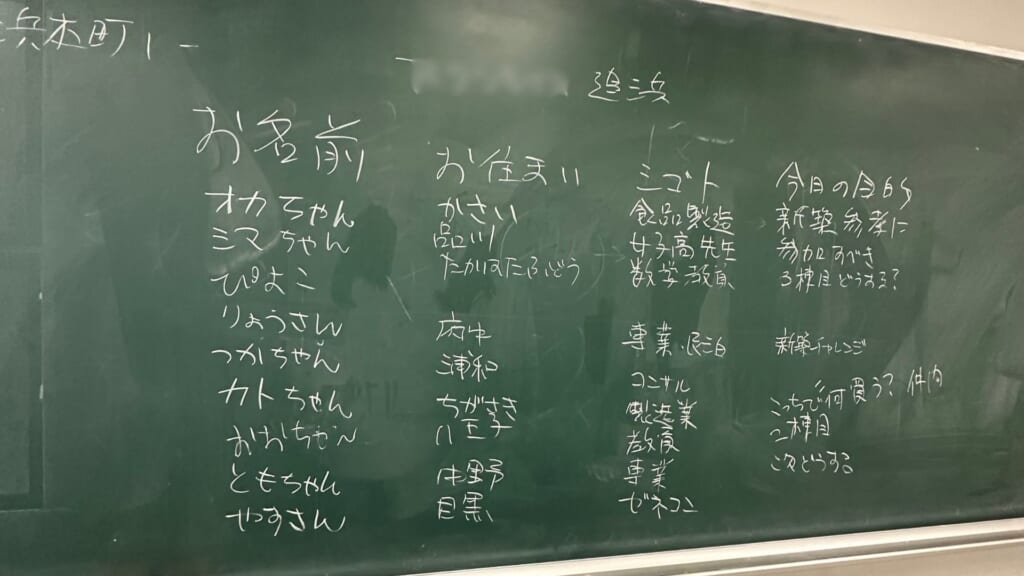 浜本町1-
追浜
お名前 お住まい シゴト 今日の目的
オカちゃん かさい 食品製造 新築参考に
シマちゃん 品川 女子高先生 参加すべき
ぴよこ たかはたふどう 数学教員 3棟目どうする?
りょうさん 府中 専業・民泊 新築チャレンジ
つかちゃん 浦和 コンサル
カトちゃん ちがさき 製造業 こっちで何買う?
おおちゃん 八王子 教員 2棟目
ともちゃん 中野 専業 こんどどうする
やすさん 目黒 ゼネコン